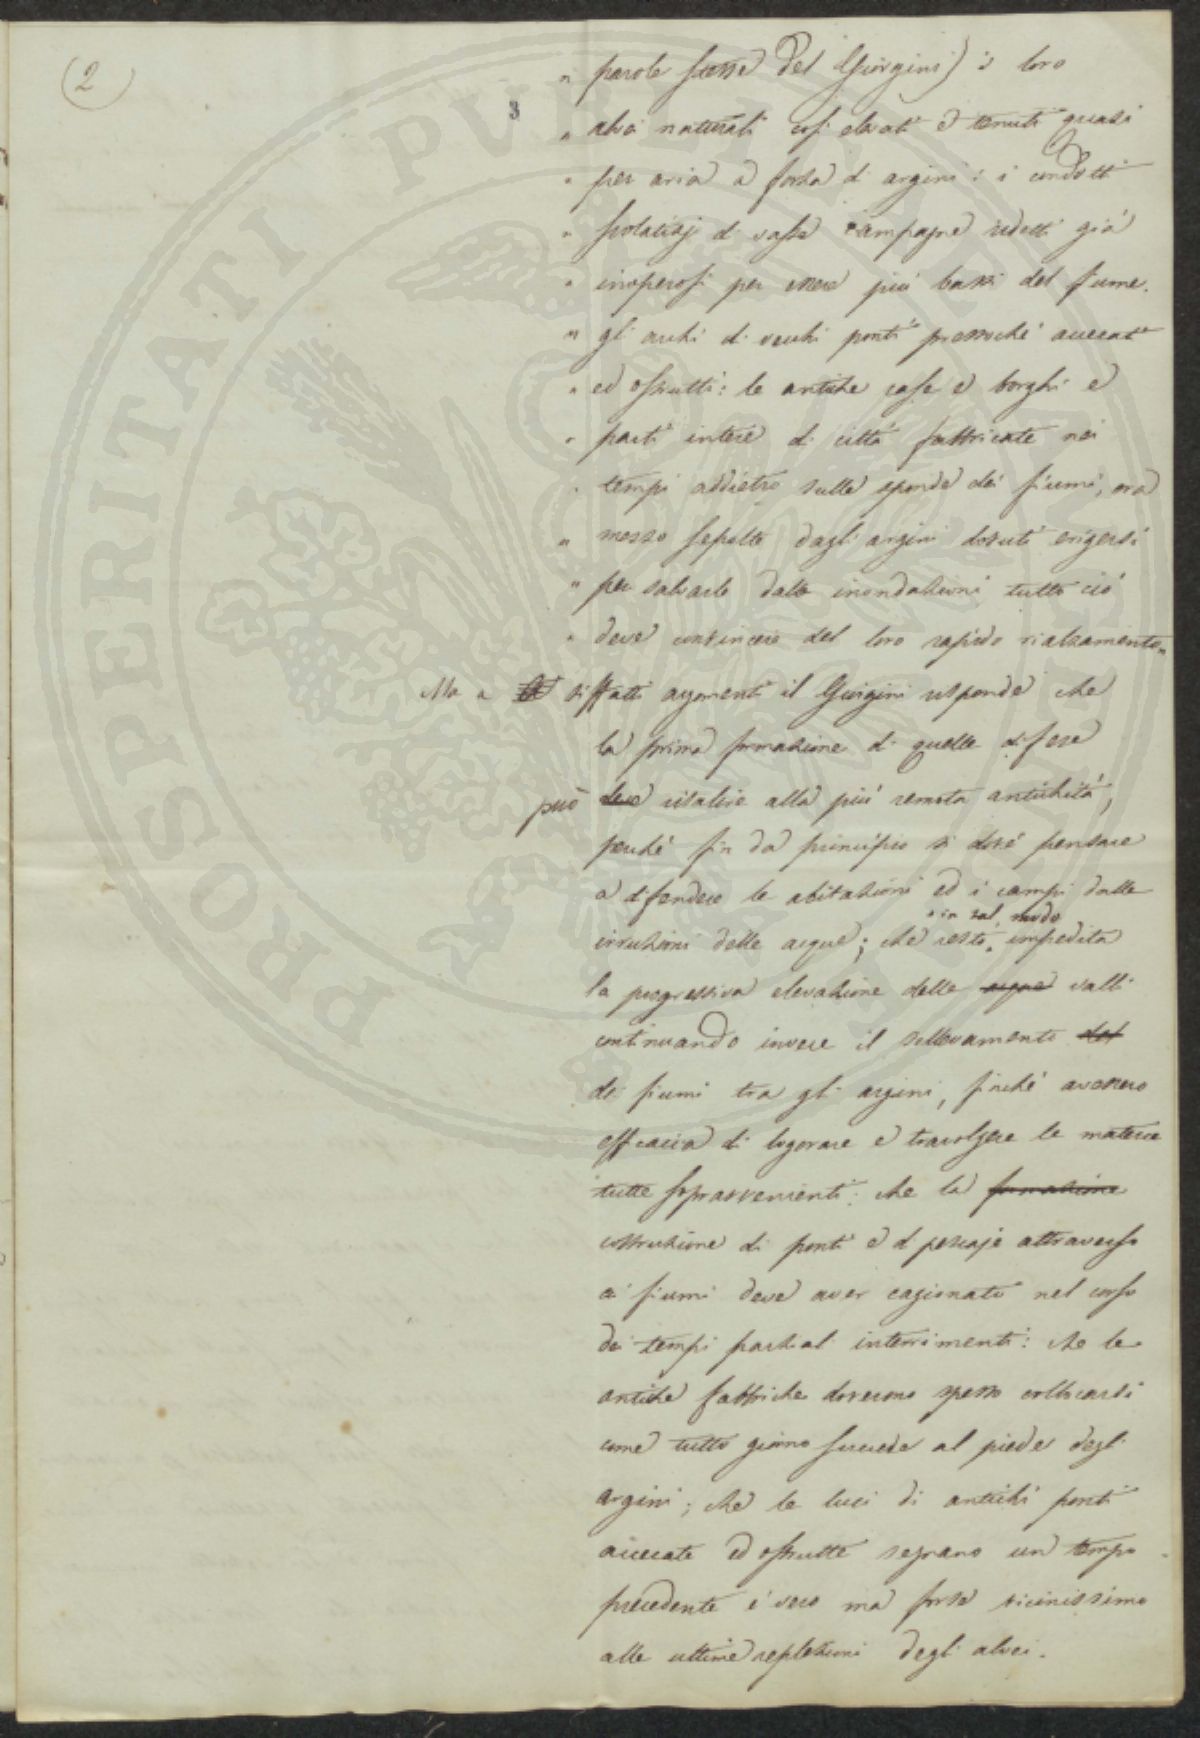 (2)
3
" parole stesse del Giorgini) i loro
" alvei naturali così elevati e tenuti quasi
" per aria a forza di argini: i condotti
" scolatizj di vaste campagne ridotti già
" inoperosi per essere più bassi del fiume.
" gli archi di vecchi ponti pressochè accecati
" ed ostrutti: le antiche case e borghi e
" parti intere di città fabbricate nei
" tempi addietro sulle sponde dei fiumi, ora
" mezzo sepolte dagli argini dovuti erigersi
" per salvarle dalle inondazioni tutto ciò
" deve convincere del loro rapido rialzamento„
Ma a siffatti argomenti il Giorgini risponde che
la prima formazione di quelle difese
può deve risalire alla più remota antichità,
perchè fin da principio si dovè pensare
a difendere le abitazioni ed i campi dalle
irruzioni delle acque; che restò impedita
e in tal modo
la progressiva elevazione delle acque valli
continuando invece il sollevamento del
dei fiumi tra gli argini, finchè avessero
efficacia di logorare e travolgere le materie
tutte sopravvenienti: che la formazione
costruzione di ponti e di pescaje attraverso
ai fiumi deve aver cagionato nel corso
dei tempi parziali interrimenti: che le
antiche fabbriche doverono spesso collocarsi
come tutto giorno succede al piede degli
argini; che le luci di antichi ponti
accecate ed ostrutte segnano un tempo
precedente è vero ma forse vicinissimo
alle ultime replezioni degli alvei.
PROSPERITATI PVBLICAE